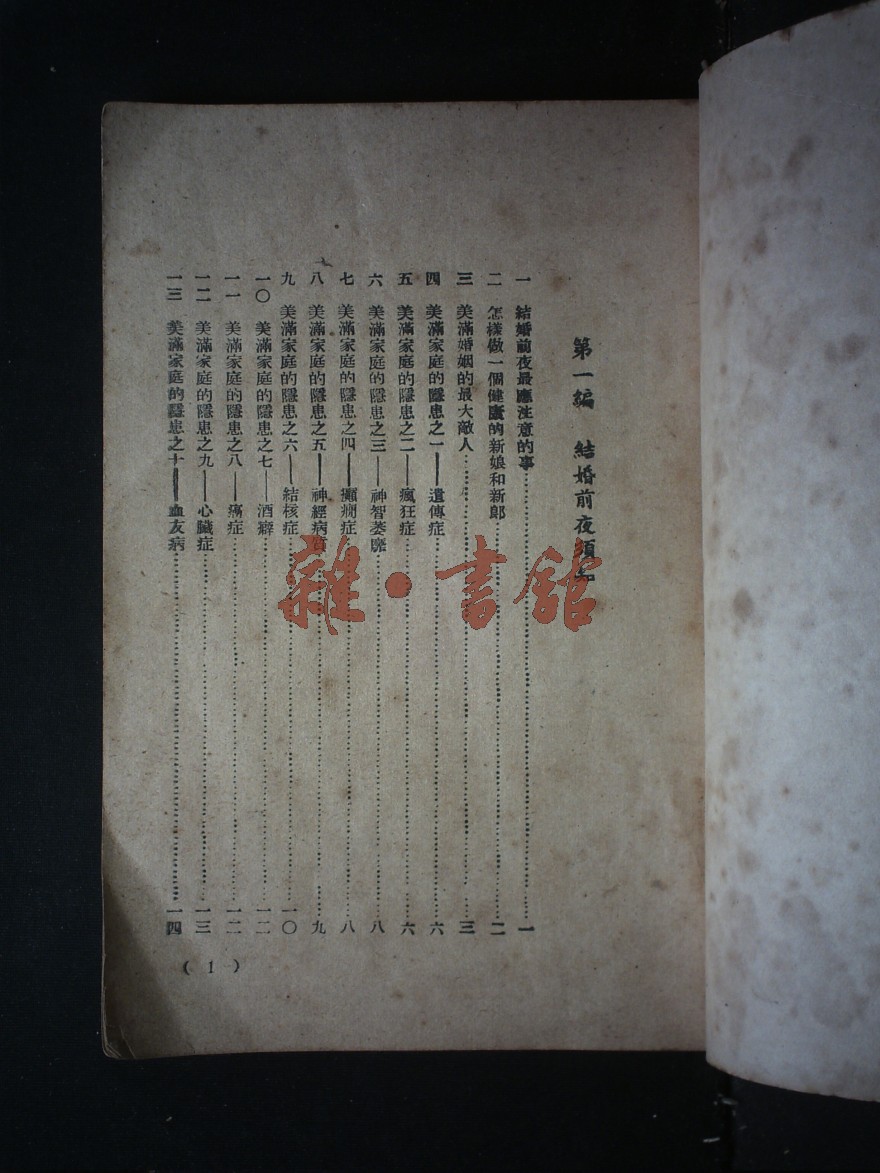 第一編 結婚前夜須知
一 結婚前夜最應注意的事 一
二 怎樣做一個健康的新娘和新郎 二
三 美滿婚姻的最大敵人 三
四 美滿家庭的隱患之一——遺傳症 六
五 美滿家庭的隱患之二——瘋狂症 六
六 美滿家庭的隱患之三——神智萎靡 八
七 美滿家庭的隱患之四——癲癇症 八
八 美滿家庭的隱患之五——神經病質 九
九 美滿家庭的隱患之六——結核症 一〇
一〇 美滿家庭的隱患之七——酒癖 一二
一一 美滿家庭的隱患之八——癌症 一二
一二 美滿家庭的隱患之九——心臟症 一三
一三 美滿家庭的隱患之十——血友病 一四
( 1 )
雜·書館